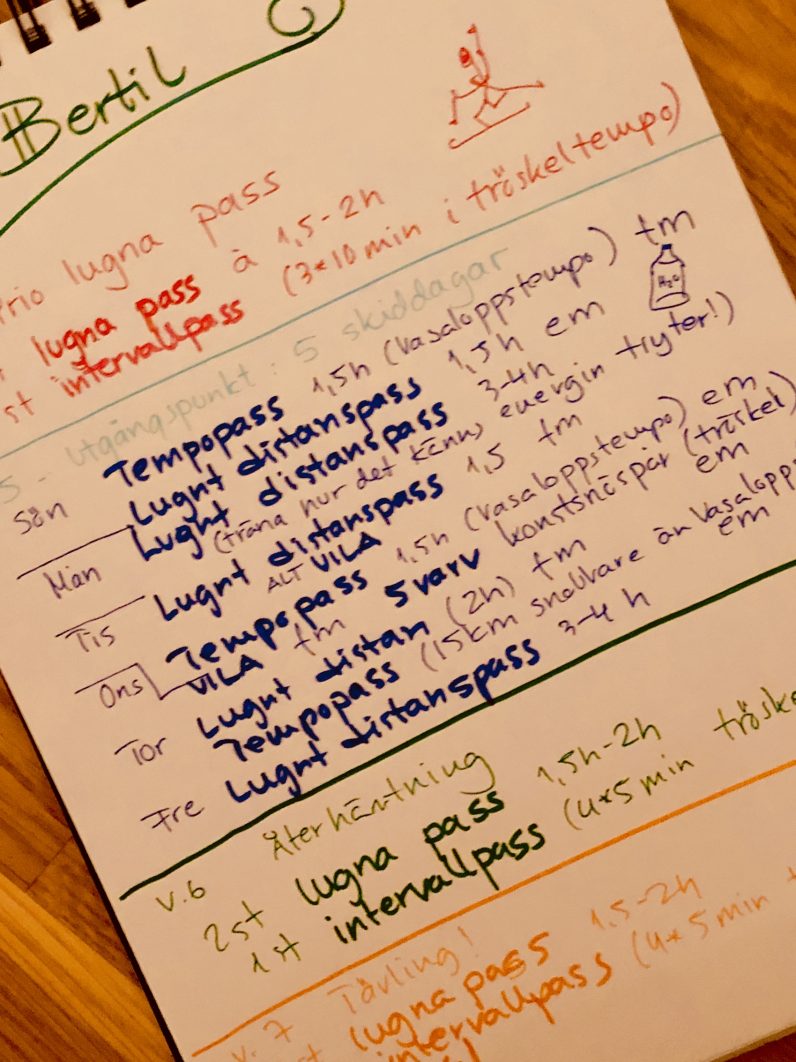 Bertil
lugna pass
lugna pass à 1,5-2h
st intervallpass (3*10 min i tröskeltempo)
5 - Utgångspunkt: 5 skiddagar
Sön Tempopass 1,5h (Vasaloppstempo) fm
Lugnt distanspass 1,5h em
H2O
Mån Lugnt distanspass 3-4h
(träna hur det känns, energin tryter!)
Tis Lugnt distanspass 1,5 fm
ALT VILA
Ons Tempopass 1,5h (vasaloppstempo) em
VILA fm 5 varv konstsnöspår (tröskel) em
Tor Lugnt distan (2h) fm
Tempopass (15km snabbare än Vasalopps em
Fre Lugnt distanspass 3-4 h
v.6 Återhämtning
2st lugna pass 1,5h-2h
1st intervallpass (4*5 min tröske
v.7 Tävling!
lugna pass 1,5-2h
intervallpass (4*5 min